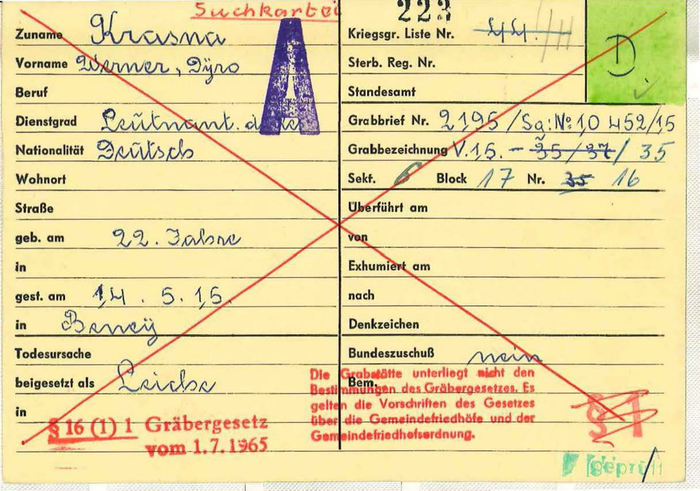 Suchkartei
223
Zuname Krasna
Vorname Werner, Dyro
Beruf
Dienstgrad Leutnant. d.
A
Nationalität Deutsch
Wohnort
Straße
geb. am 22. Jahre
in
gest. am 14. 5. 15.
in Beney
Todesursache
beigesetzt als Leiche
in
§ 16 (1) 1 Gräbergesetz
vom 1.7.1965
Kriegsgr. Liste Nr. 44
Sterb. Reg. Nr.
Standesamt
Grabbrief Nr. 2195/Sg: No 10 452/15
Grabbezeichnung V. 15. - 35/37/ 35
Sekt. 6 Block 17 Nr. 35 16
Überführt am
von
Exhumiert am
nach
Denkzeichen
Bundeszuschuß nein
Bem.
Die Grabstätte unterliegt nicht den
Bestimmungen des Gräbergesetzes. Es
gelten die Vorschriften des Gesetzes
über die Gemeindefriedhöfe und der
Gemeindefriedhofsordnung.
§ 1
Geprüft